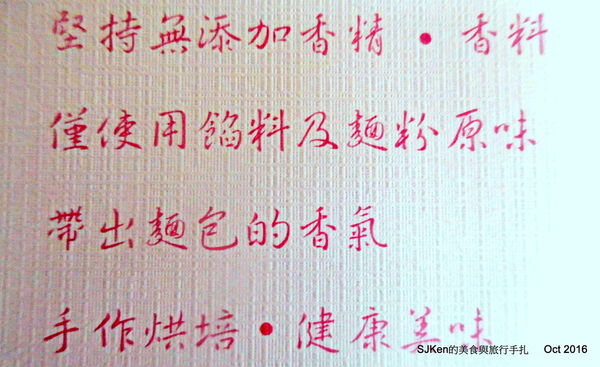 堅持無添加香精•香料
僅使用餡料及麵粉原味
帶出麵包的香氣
手作烘培•健康美味
SJKen的美食與旅行手扎 Oct 2016